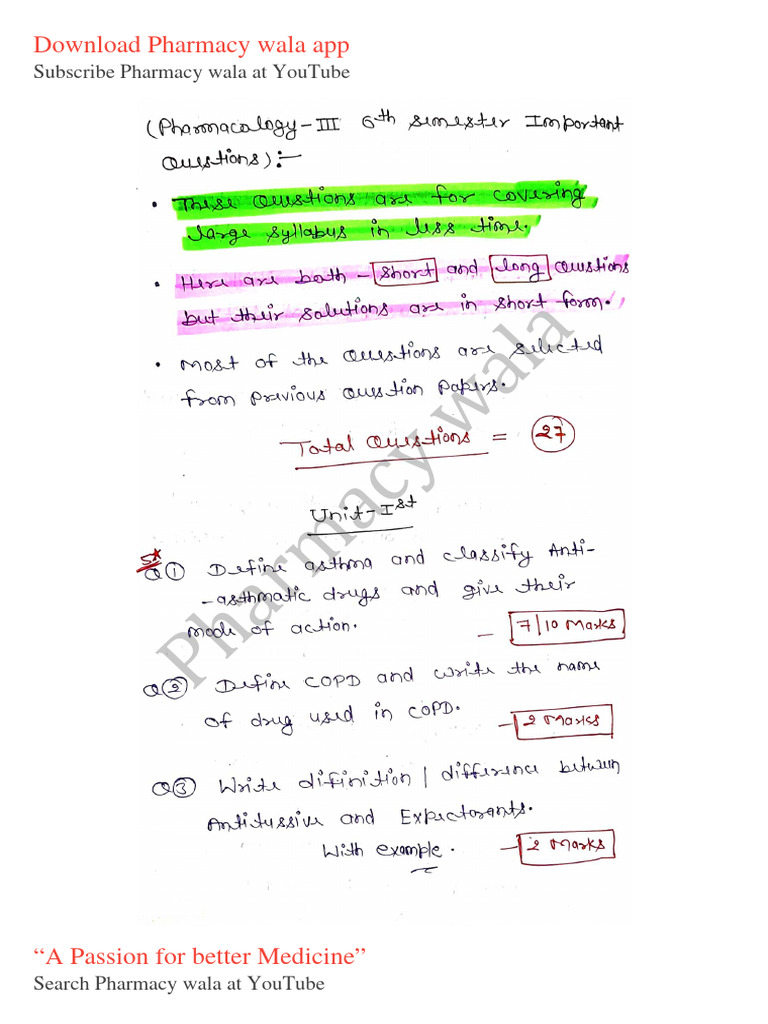 Download Pharmacy wala app
Subscribe Pharmacy wala at YouTube
(Pharmacology-III 6th semester Important
Questions):-
• These Questions are for covering
large syllabus in less time.
• Here are both - short and long Questions
but their solutions are in short form.
• Most of the Questions are selected
from previous Question Papers.
Total Questions = 27
Unit-Ist
5*
Q1 Define asthma and classify Anti-
-asthmatic drugs and give their
mode of action. - 7/10 Marks
Q2 Define COPD and write the name
of drug used in COPD. - 2 Marks
Q3 Write difinition / difference between
Antitussive and Expectorants.
With example. - 2 Marks
Pharmacy wala
“A Passion for better Medicine”
Search Pharmacy wala at YouTube